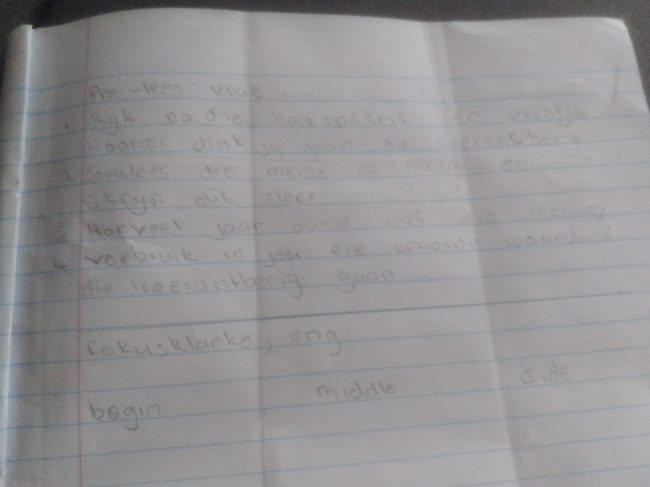 Pre-lees vrae
1. Kyk na die hoofopskrif en prentjie
waaroor dink jy gaan die koerantberig
2. die meise se name en
skryf dit neer
3. Hoeveel jaar ound was die meise?
4. verbruik in jou eie woorde waaroor
die koerantberig gaan
Fokusklanke, eng
begin middle side